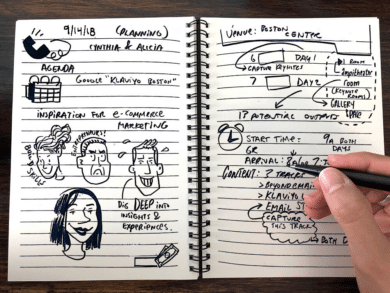 9/14/18 (PLANNING)
CYNTHIA & ALICIA
AGENDA
GOOGLE "KLAVIYO BOSTON"
INSPIRATION FOR E-COMMERCE
MARKETING
BRAND
ENTREPRENEURS!
DIG DEEP INTO
INSIGHTS &
EXPERIENCES.
VENUE: BOSTON
CENTER
6 DAY 1
→ CAPTURE KEYNOTES
7 DAY 2
1 ROOM
ROOM
(KEYNOTE
GALLERY
SPACE
17 POTENTIAL OUTPUTS
START TIME: 9A BOTH
DAYS
GR
ARRIVAL:
CONTENT: 2 TRACKS
> BEYOND EMAIL
> KLAVIYO
> EMAIL
CAPTURE
THIS TRACK
BOTH